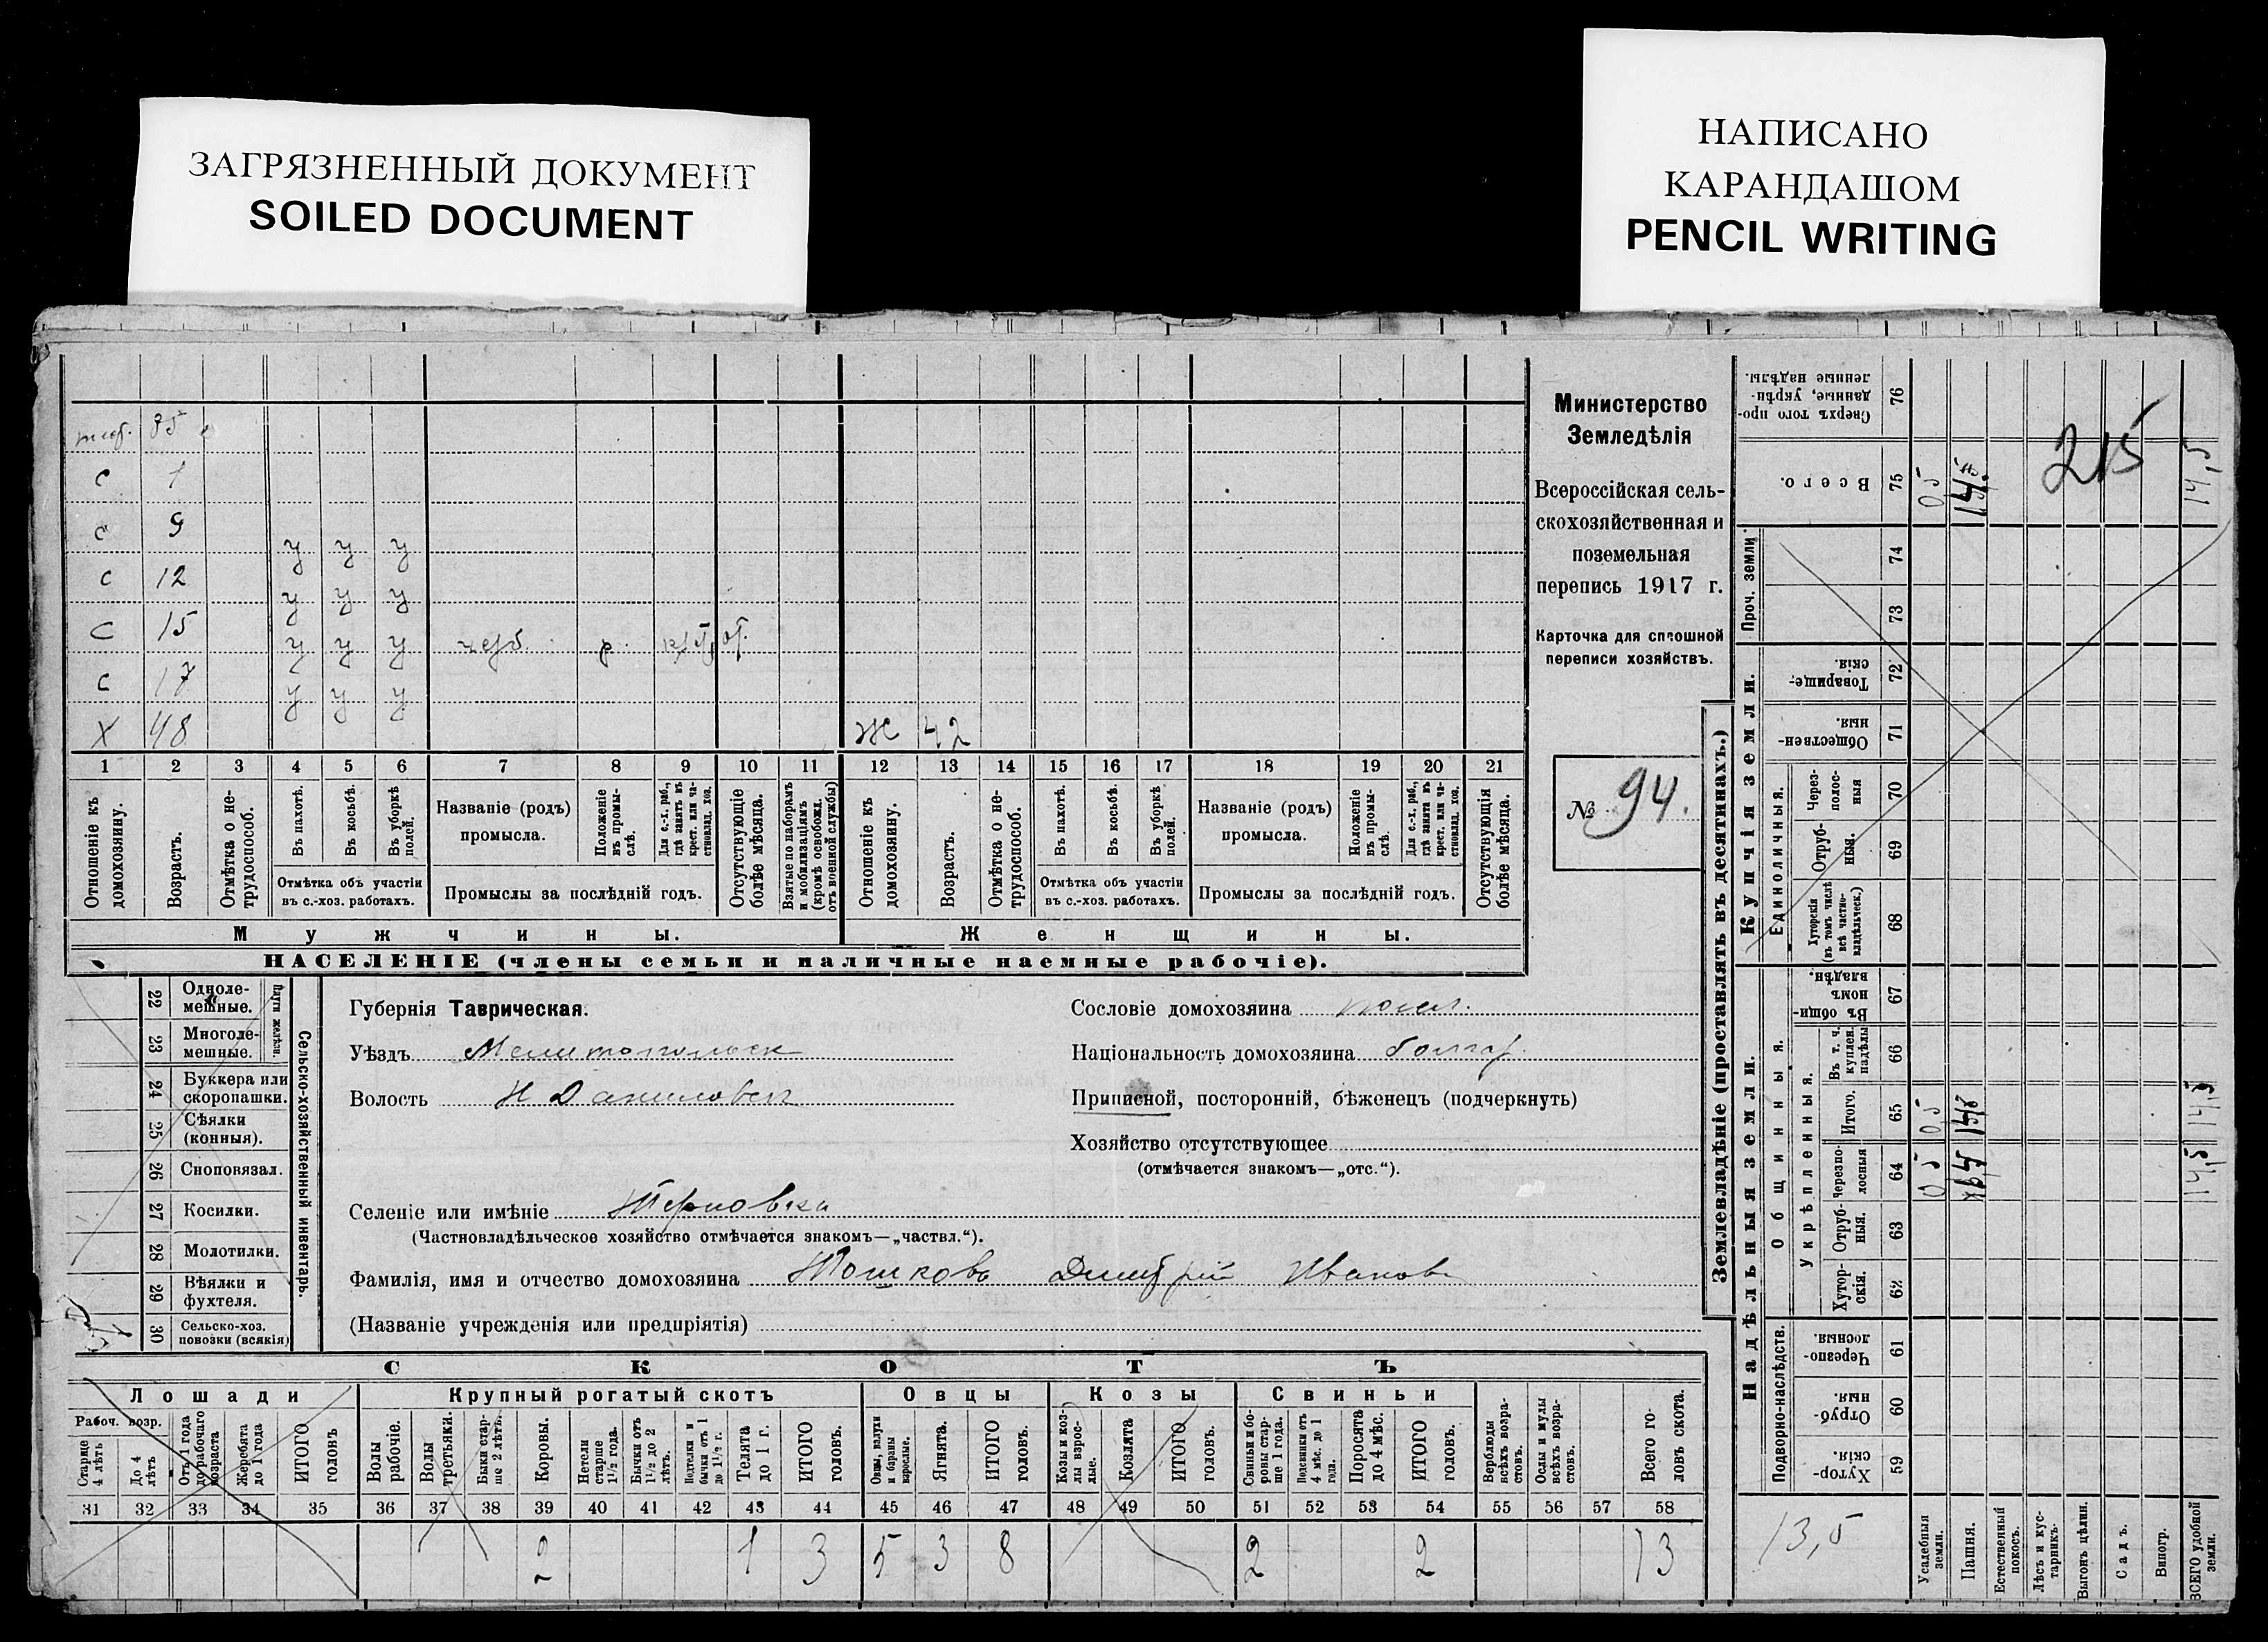 ЗАГРЯЗНЕННЫЙ ДОКУМЕНТ
SOILED DOCUMENT
НАПИСАНО
КАРАНДАШОМ
PENCIL WRITING
35
С 1
С 9
У У У
С 12
У У У
С 15
У У У
С 17
У У У
Х 48
Ж 42
1 2 3 4 5 6 7 8 9 10 11 12 13 14 15 16 17 18 19 20 21
Отношеніе къ домохозяину.
Возрастъ.
Отмѣтка о нетрудоспособ.
Въ пахотѣ.
Въ косьбѣ.
Въ уборкѣ полей.
Отмѣтка объ участіи
въ с.-хоз. работахъ.
Названіе (родъ)
промысла.
Положеніе въ промыслѣ.
Для с.-х. раб., гдѣ занятъ въ крест. или частновлад. хоз.
Промыслы за послѣдній годъ.
Отсутствующіе болѣе мѣсяца.
Взятые по наборамъ и мобилизаціямъ (кромѣ освобожд. отъ военной службы)
Отношеніе къ домохозяину.
Возрастъ.
Отмѣтка о нетрудоспособ.
Въ пахотѣ.
Въ косьбѣ.
Въ уборкѣ полей.
Отмѣтка объ участіи
въ с.-хоз. работахъ.
Названіе (родъ)
промысла.
Положеніе въ промыслѣ.
Для с.-х. раб., гдѣ занята въ крест. или частновлад. хоз.
Промыслы за послѣдній годъ.
Отсутствующія болѣе мѣсяца.
Мужчины.
Женщины.
НАСЕЛЕНІЕ (члены семьи и наличные наемные рабочіе).
Министерство
Земледѣлія
Всероссійская сель-
скохозяйственная и
поземельная
перепись 1917 г.
Карточка для сплошной
переписи хозяйствъ.
№ 94.
22 Одноле-
мешные.
23 Многоле-
мешные.
Плуги желѣзн.
24 Буккера или
скоропашки.
25 Сѣялки
(конныя).
26 Сноповязал.
27 Косилки.
28 Молотилки.
29 Вѣялки и
фухтеля.
30 Сельско-хоз.
повозки (всякія)
Сельско-хозяйственный инвентарь.
Губернія Таврическая.
Уѣздъ Мелитопольск
Волость Н Даниловск
Селеніе или имѣніе Терновка
(Частновладѣльческое хозяйство отмѣчается знакомъ—„частвл.“).
Фамилія, имя и отчество домохозяина Тошковъ Димитрій Ивановъ
(Названіе учрежденія или предпріятія)
Сословіе домохозяина посел.
Національность домохозяина болгар.
Приписной, посторонній, бѣженецъ (подчеркнуть)
Хозяйство отсутствующее
(отмѣчается знакомъ—„отс.“).
СКОТЪ
Лошади
Крупный рогатый скотъ
Овцы
Козы
Свиньи
Рабоч. возр.
Старше 4 лѣтъ
До 4 лѣтъ
Отъ 1 года до рабочаго возраста
Жеребята до 1 года
ИТОГО головъ
Волы рабочіе.
Волы третьяки.
Быки старше 2 лѣтъ.
Коровы.
Нетели старше 1½ года.
Бычки отъ 1½ до 2 лѣтъ.
Подтелки и бычки отъ 1 до 1½ г.
Телята до 1 г.
ИТОГО головъ.
Овцы, валухи и бараны взрослые.
Ягнята.
ИТОГО головъ.
Козы и козлы взрослые.
Козлята
ИТОГО головъ.
Свиньи и боровы старше 1 года.
Подсвинки отъ 4 мѣс. до 1 года.
Поросята до 4 мѣс.
ИТОГО головъ.
Верблюды всѣхъ возрастовъ.
Ослы и мулы всѣхъ возрастовъ.
Всего головъ скота.
31 32 33 34 35 36 37 38 39 40 41 42 43 44 45 46 47 48 49 50 51 52 53 54 55 56 57 58
2 1 3 5 3 8 2 2 13
Землевладѣніе (проставлять въ десятинахъ.)
Купчія земли.
Надѣльныя земли.
Сверхъ того проданные, укрѣпленные надѣлы. 76
Всего. 75
Проч. земли
74
73
Товарищескія. 72
Общественныя. 71
Единоличныя.
Черезполосныя 70
Отрубныя. 69
Хуторскія (въ томъ числѣ всѣ частновладѣльческ.) 68
Общинныя.
Въ общинномъ владѣн. 67
Укрѣпленныя.
Въ т. ч. куплен. надѣлы 66
Итого. 65
Черезполосныя 64
Отрубныя. 63
Хуторскія. 62
Подворно-наслѣдств.
Черезполосныя. 61
Отрубныя. 60
Хуторскія. 59
215
05
14,5
05
14,5
05
14,5
13,5
Усадебныя земли.
Пашня.
Естественный покосъ.
Лѣсъ и кустарникъ.
Выгонъ цѣлин.
Садъ.
Виногр.
ВСЕГО удобной земли.